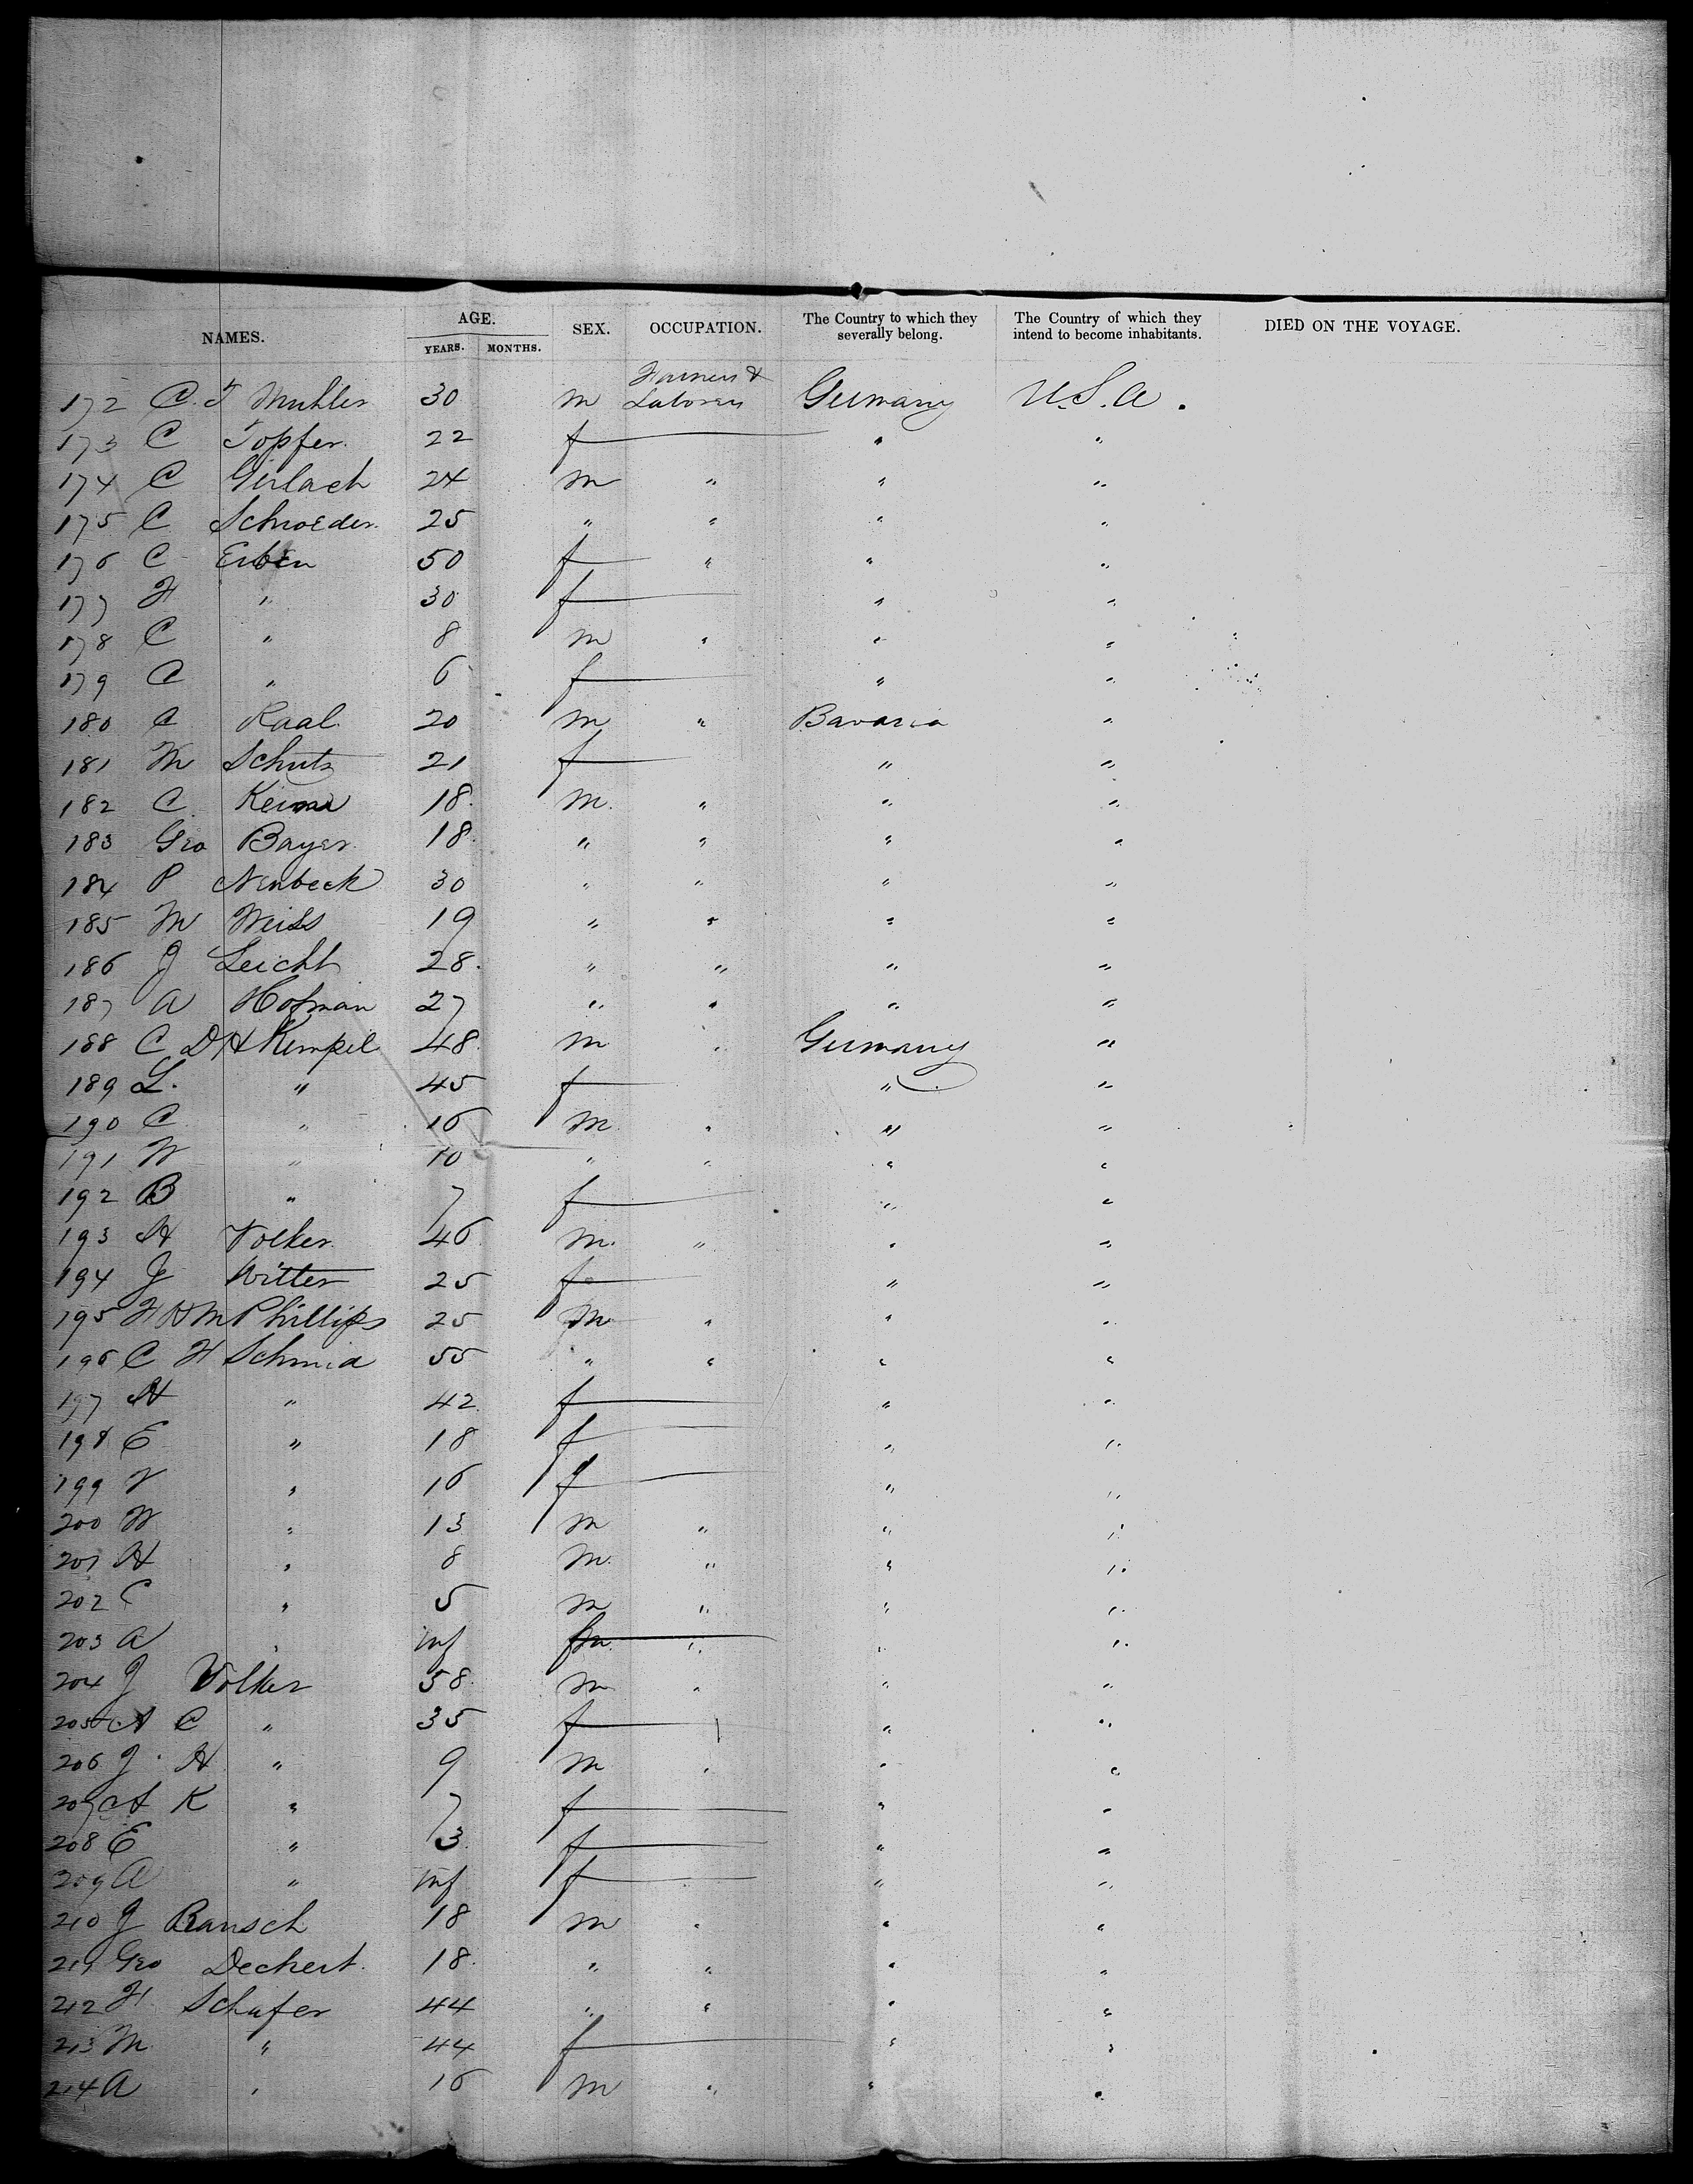 NAMES. AGE. YEARS. MONTHS. SEX. OCCUPATION. The Country to which they severally belong. The Country of which they intend to become inhabitants. DIED ON THE VOYAGE.
172 C. F Muhler 30 m Farmers & Laborers Germany U.S.A.
173 C Topfer 22 f " "
174 C Gerlach 24 m " " "
175 C Schroeder 25 " " " "
176 C Erben 50 f " " "
177 F " 30 f " "
178 C " 8 m " " "
179 C " 6 f " "
180 C Raal 20 m " Bavaria "
181 M Schutz 21 f " "
182 C 18 m " " "
183 Geo Bayer 18 " " " "
184 P Neubeck 30 " " " "
185 M Weiss 19 " " " "
186 J Leicht 28 " " " "
187 A Hofman 27 " " " "
188 C D H Kempel 48 m " Germany "
189 L. " 45 f " "
190 C " 16 m " " "
191 W " 10 " " " "
192 B " 7 f " "
193 H Volker 46 m " " "
194 J Witter 25 f " "
195 F H M Phillips 25 m " " "
196 C F Schmid 55 " " " "
197 H " 42 f " "
198 E " 18 f " "
199 V " 16 f " "
200 W " 13 m " " "
201 H " 8 m " " "
202 C " 5 m " " "
203 A " inf " " "
204 J Volker 58 m " " "
205 A C " 35 f " "
206 J. H " 9 m " " "
207 A K " 7 f " "
208 E " 3 f " "
209 A " inf f " "
210 J Rausch 18 m " " "
211 Geo Dechert 18 " " " "
212 F Schafer 44 " " " "
213 M " 44 f " "
214 A " 16 m " " "